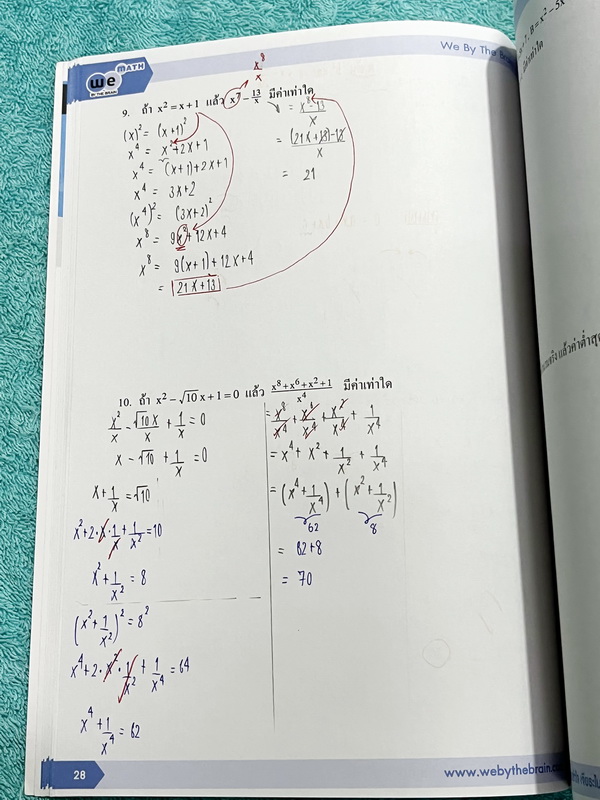 We
MATH
BY THE BRAIN
We By The Brain
9. ถ้า x² = x + 1 แล้ว x⁷ − 13/x มีค่าเท่าใด
x⁸/x
(x)² = (x+1)²
x⁴ = x²+2x+1
x⁴ = (x+1)+2x+1
x⁴ = 3x+2
(x⁴)² = (3x+2)²
x⁸ = 9x²+12x+4
x⁸ = 9(x+1)+12x+4
= 21x+13
= (x⁸-13)/x
= ((21x+13)-13)/x
= 21
10. ถ้า x² − √10 x + 1 = 0 แล้ว (x⁸ + x⁶ + x² + 1)/x⁴ มีค่าเท่าใด
x²/x - √10x/x + 1/x = 0
x - √10 + 1/x = 0
x + 1/x = √10
x²+2·x·1/x+1/x² = 10
x²+1/x² = 8
(x²+1/x²)² = 8²
x⁴+2·x²·1/x² + 1/x⁴ = 64
x⁴+1/x⁴ = 62
= x⁴ + x² + 1/x² + 1/x⁴
= (x⁴+1/x⁴) + (x²+1/x²)
62 8
= 62+8
= 70
28
www.webythebrain.c
B = x² − 5x